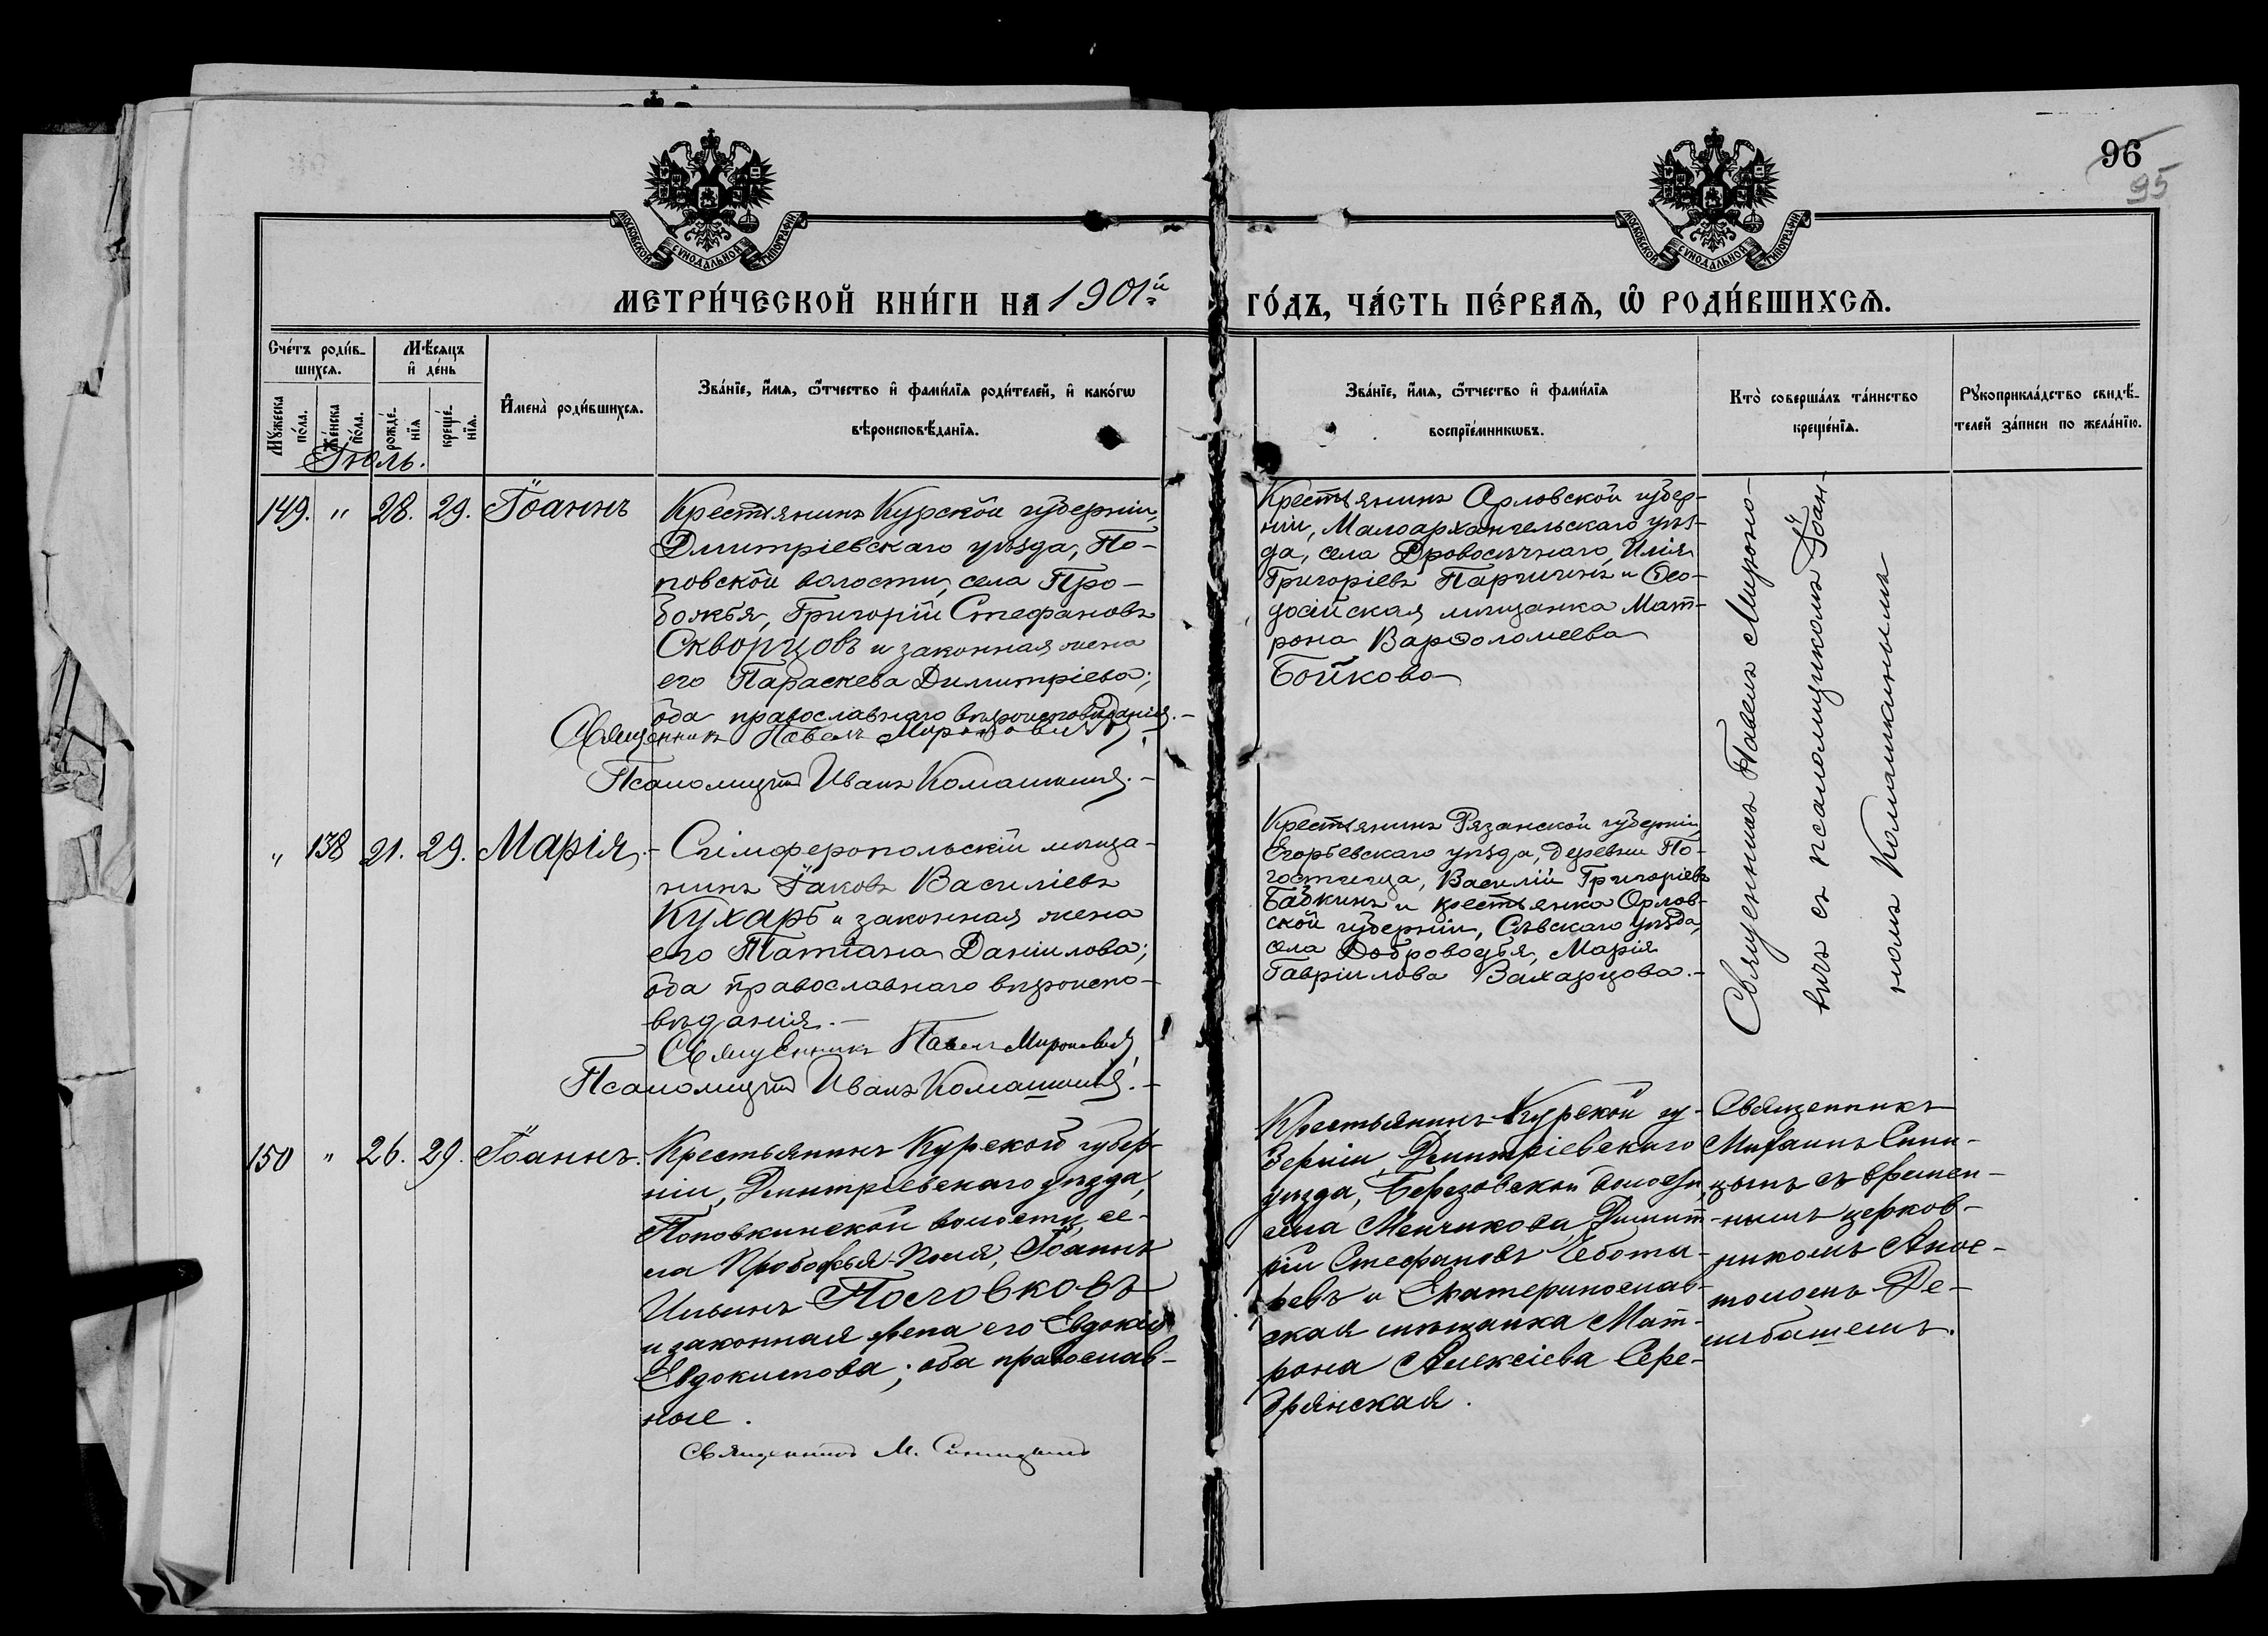 96
95
МОСКОВСКОЙ СѴНОДАЛЬНОЙ ТИПОГРАФІИ
МОСКОВСКОЙ СѴНОДАЛЬНОЙ ТИПОГРАФІИ
МЕТРИ́ЧЕСКОЙ КНИ́ГИ НА 1901й ГО́ДЪ, ЧА́СТЬ ПЕ́РВАѦ, Ѡ РОДИ́ВШИХСѦ.
Сче́тъ роди́в-
шихсѧ.
Мѣ́сѧцъ
и҆ де́нь
Мꙋ́жеска
по́ла.
Же́нска
по́ла.
рожде́-
нїѧ
креще́-
нїѧ.
И҆мена̀ роди́вшихсѧ.
Зва́нїе, и҆́мѧ, ѻ҆́тчество и҆ фами́лїѧ роди́телей, и҆ како́гѡ
вѣроисповѣ́данїѧ.
Зва́нїе, и҆́мѧ, ѻ҆́тчество и҆ фами́лїѧ
воспрїе́мникѡвъ.
Кто̀ соверша́лъ та́инство
креще́нїѧ.
Рꙋкоприкла́дство свидѣ́-
телей за́писи по жела́нїю.
Іюль.
149. " 28. 29. Іоаннъ
Крестьянинъ Курской губерніи,
Дмитріевскаго уѣзда, По-
повской волости, села Про-
божья, Григорій Стефановъ
Скворцовъ и законная жена
его Параскева Димитріева;
оба православнаго вѣроисповѣданія.-
Священникъ Павелъ Мироновичъ
Псаломщикъ Иванъ Комашкинъ.-
Крестьянинъ Орловской губер-
ніи, Малоархангельскаго уѣз-
да, села Дровосѣчнаго, Илія
Григоріевъ Паричинъ и Ѳео-
досійская мѣщанка Мат-
рона Варѳоломеева
Бойкова
Священникъ Павелъ Мироно-
вичъ съ псаломщикомъ Іоан-
номъ Комашкинымъ
" 138 21. 29. Марія.-
Симферопольскій мѣща-
нинъ Іаковъ Василіевъ
Кухарь и законная жена
его Татіана Даніилова;
оба православнаго вѣроиспо-
вѣданія.-
Священникъ Павелъ Мироновичъ
Псаломщикъ Иванъ Комашкинъ.-
Крестьянинъ Рязанской губерніи,
Егорьевскаго уѣзда, деревни По-
гостища, Василій Григоріевъ
Бабкинъ и крестьянка Орлов-
ской губерніи, Сѣвскаго уѣзда,
села Доброводья, Марія
Гавріилова Захарцова.-
150 " 26. 29. Іоаннъ.
Крестьянинъ Курской губер-
ніи, Дмитріевскаго уѣзда,
Поповкинской волости, се-
ла Пробожья-Поля, Іоаннъ
Ильинъ Пословковъ
и законная жена его Евдокія
Евдокимова; оба православ-
ные.
Священникъ М. Синицынъ
Крестьянинъ Курской гу-
берніи, Дмитріевскаго
уѣзда, Березовской волости,
села Меньчикова, Димит-
рій Стефановъ Чебота-
ревъ и Екатеринослав-
ская мѣщанка Мат-
рона Алексіева Сере-
брянская.
Священникъ
Михаилъ Сини-
цынъ съ времен-
нымъ церков-
никомъ Апос-
толомъ Де-
либашемъ.